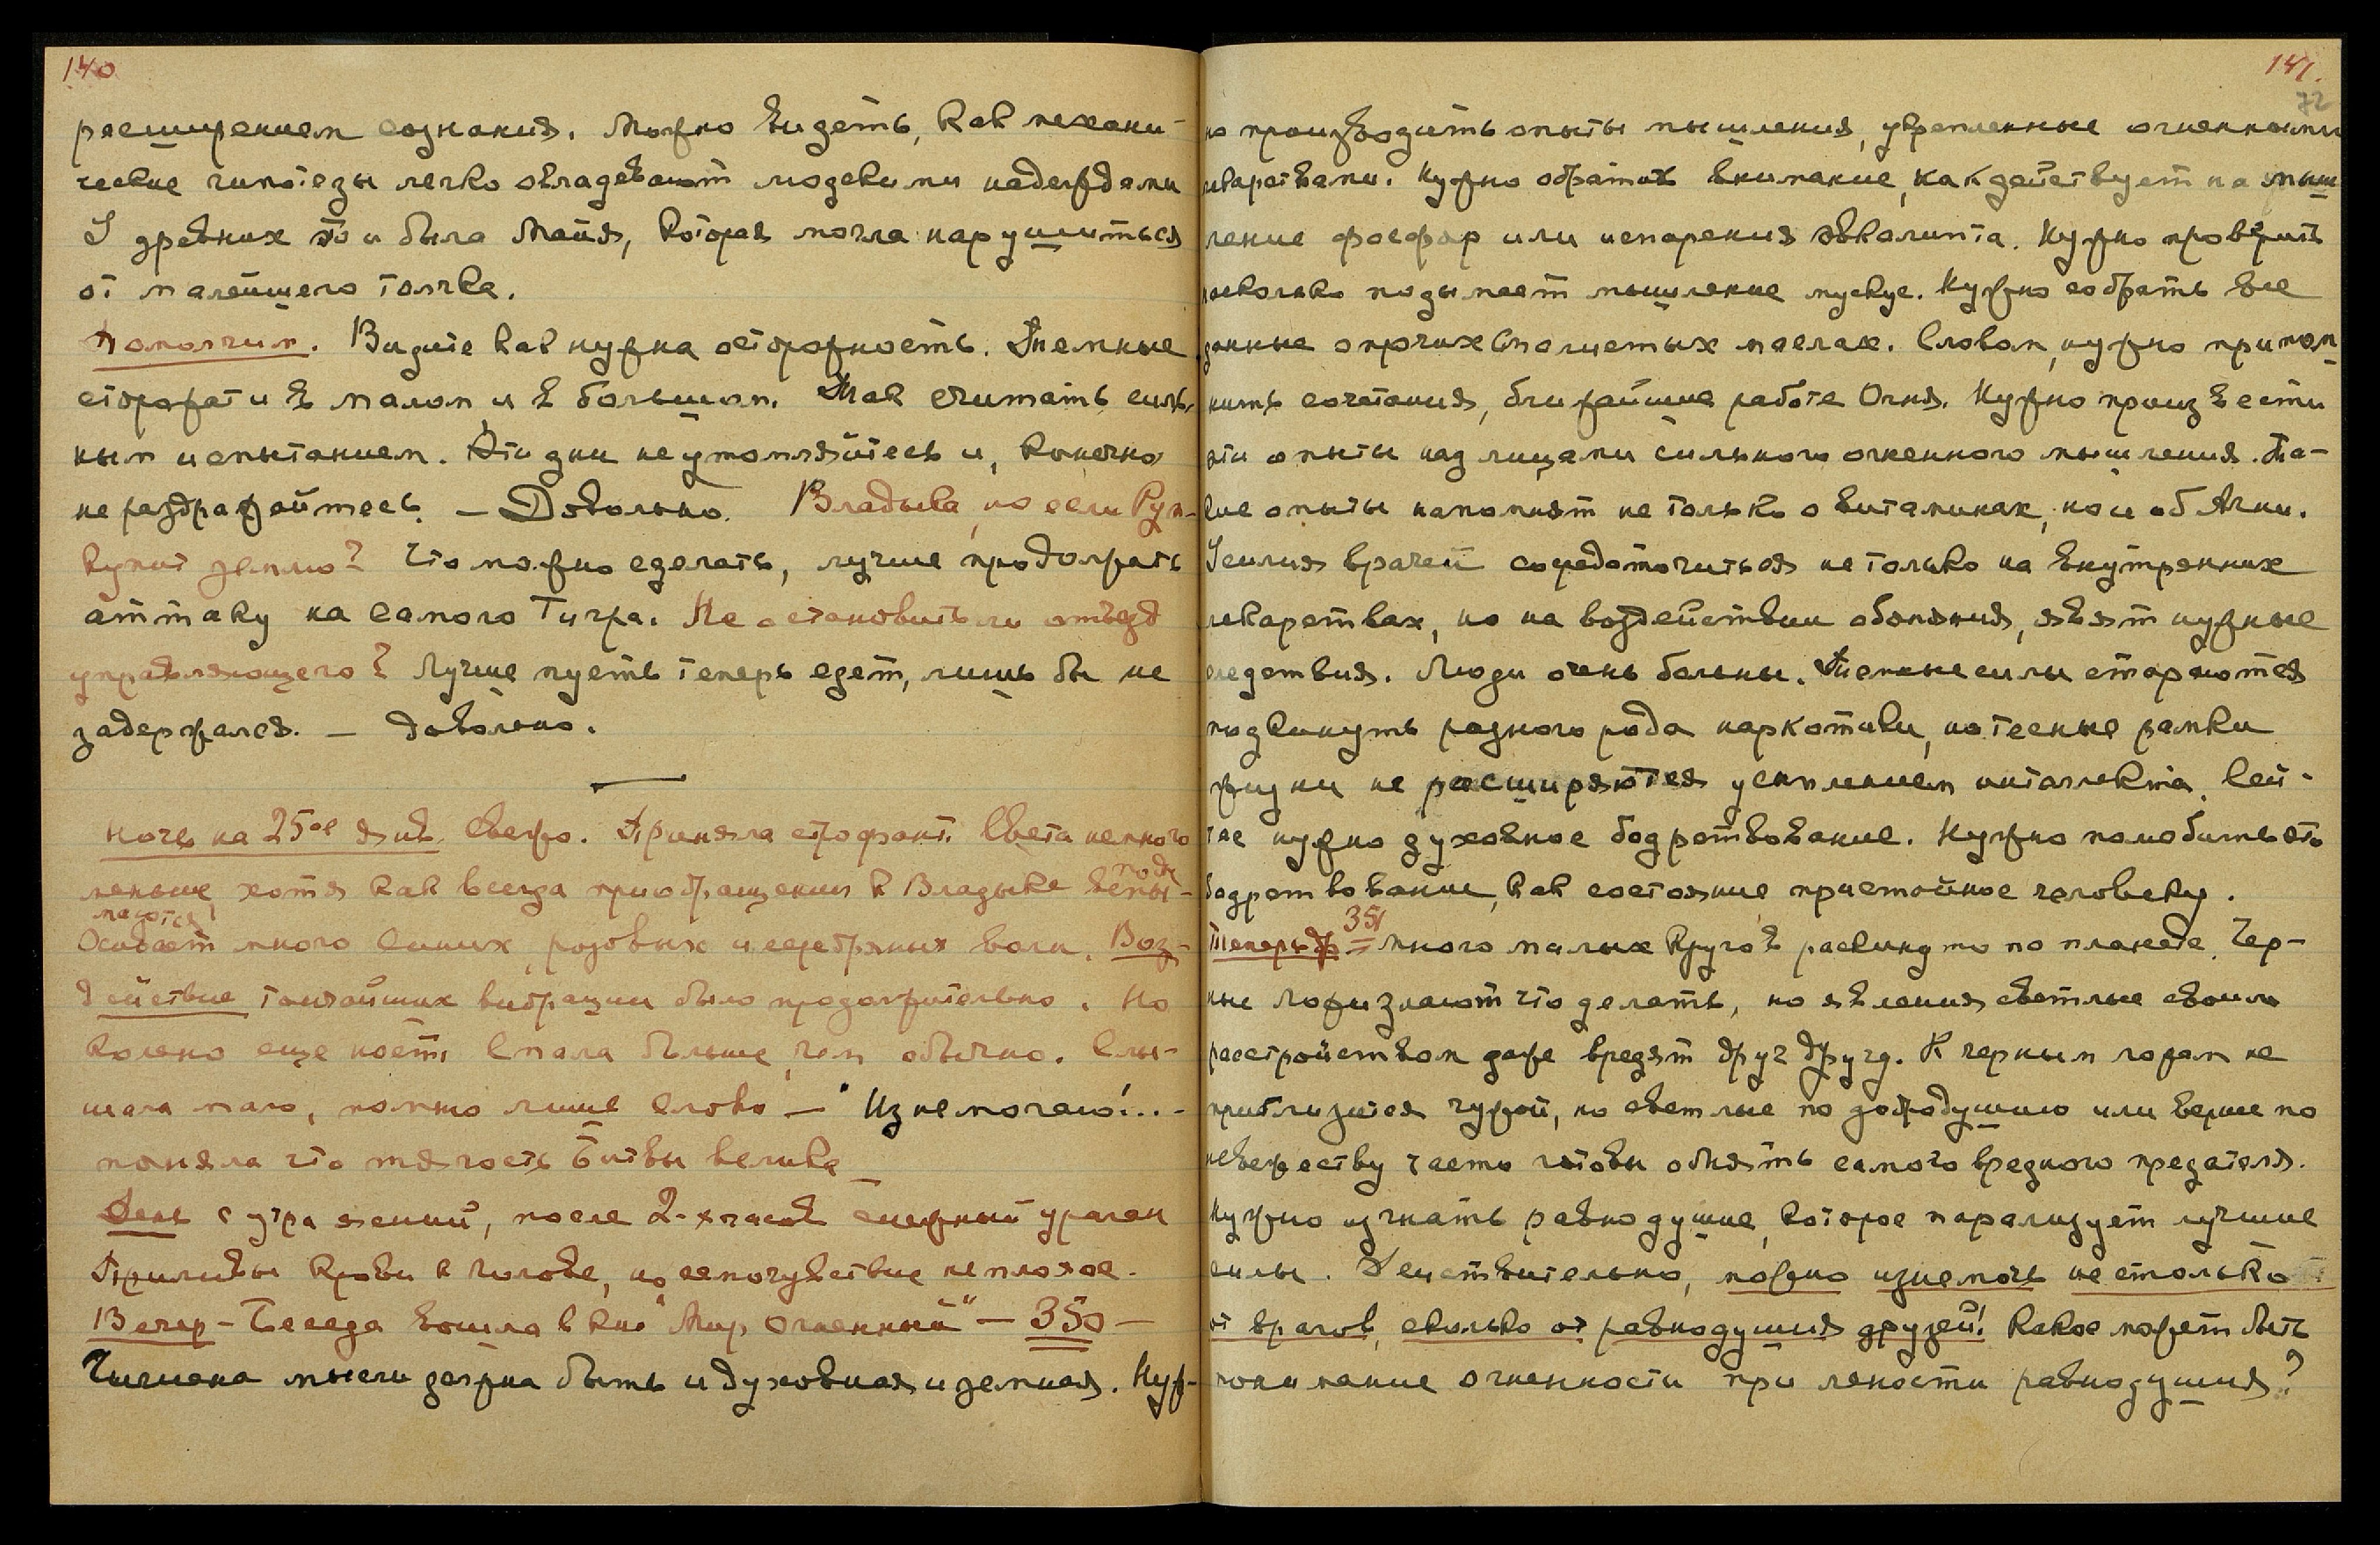 140
расширением сознания. Можно видеть, как механи-
ческие гипотезы легко овладевают людскими надеждами
У древних то и была Майя, которая могла нарушиться
от малейшего толчка.
Помолчим. Видите как нужна осторожность. Темные
сторожат и в малом и в большом. Так считать силь-
ным испытанием. Эти дни не утомляйтесь и, конечно
не раздражайтесь. — Довольно. Владыка, но если Рум-
купит землю? Что можно сделать, лучше продолжать
аттаку на самого Тигра. Не остановить ли отъезд
управляющего? Лучше пусть теперь едет, лишь бы не
задержался. — Довольно.
Ночь на 25ое янв. Свежо. Приняла строфант. Света немного
меньше хотя как всегда при обращении к Владыке вспы-
Оживает много синих, розовых и серебряных волн. Воз-
действие тончайших вибраций было продолжительно. Но
колено еще ноет. Спала больше, чем обычно. Слы-
шала мало, помню лишь слово — "Изнемогаю!..-
поняла что тягость Битвы велика
День с утра ясный, после 2-х часов снежный ураган
Приливы крови к голове, но самочувствие не плохое.
Вечер - Беседа вошла в кн. "Мир Огненный" — 350 —
Гигиена мысли должна быть и духовная и земная. Нуж-
141.
72
но производить опыты мышления, укрепленные огненными
лекарствами. Нужно обратить внимание, как действует на мыш-
ление фосфор или испарения эвкалипта. Нужно проверить
насколько подымает мышление мускус. Нужно собрать все
данные о прочих смолистых маслах. Словом, нужно припом-
нить сочетания, ближайшие работе Огня. Нужно произвести
эти опыты над лицами сильного огненного мышления. Та-
кие опыты напомнят не только о витаминах, но и об Агни.
Усилия врачей сосредоточиться не только на внутренних
лекарствах, но на воздействии обоняния, явят нужные
следствия. Люди очень больны. Темные силы стараются
подвинуть разного рода наркотики, но тесные рамки
жизни не расширяются усыплением интеллекта. Сей-
час нужно духовное бодрствование. Нужно полюбить это
бодрствование, как состояние пристойное человеку.
351
Теперь др = Много малых кругов раскинуто по планете. Чер-
ные ложи знают что делать, но явления светлые своим
расстройством даже вредят друг другу. К черным ложам не
приблизится чужой, но светлые по добродушию или вернее по
невежеству часто готовы обнять самого вредного предателя.
Нужно изгнать равнодушие, которое парализует лучшие
силы. Действительно, можно изнемочь не столько
от врагов, сколько от равнодушия друзей! Какое может быть
понимание огненности при лености равнодушия?